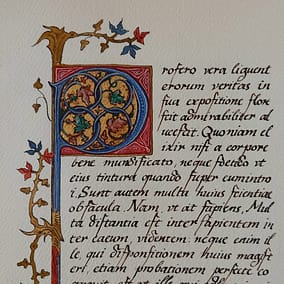 Profero vera liquent
erorum veritas in
sua expositione flore
stit admirabiliter al
ucescit. Quoniam el
ixir nisi a corpore
bene mundificato, neque foetido vt
eius tinctura quando super cum intro
i. Sunt autem multa huius scientiae
obstacula. Nam, vt ait sapiens, Mul
ta distantia est inter sapientem in
ter caecum, videntem: neque enim il
le, qui dispositionem huius magist
erij, etiam probationem perfecte co